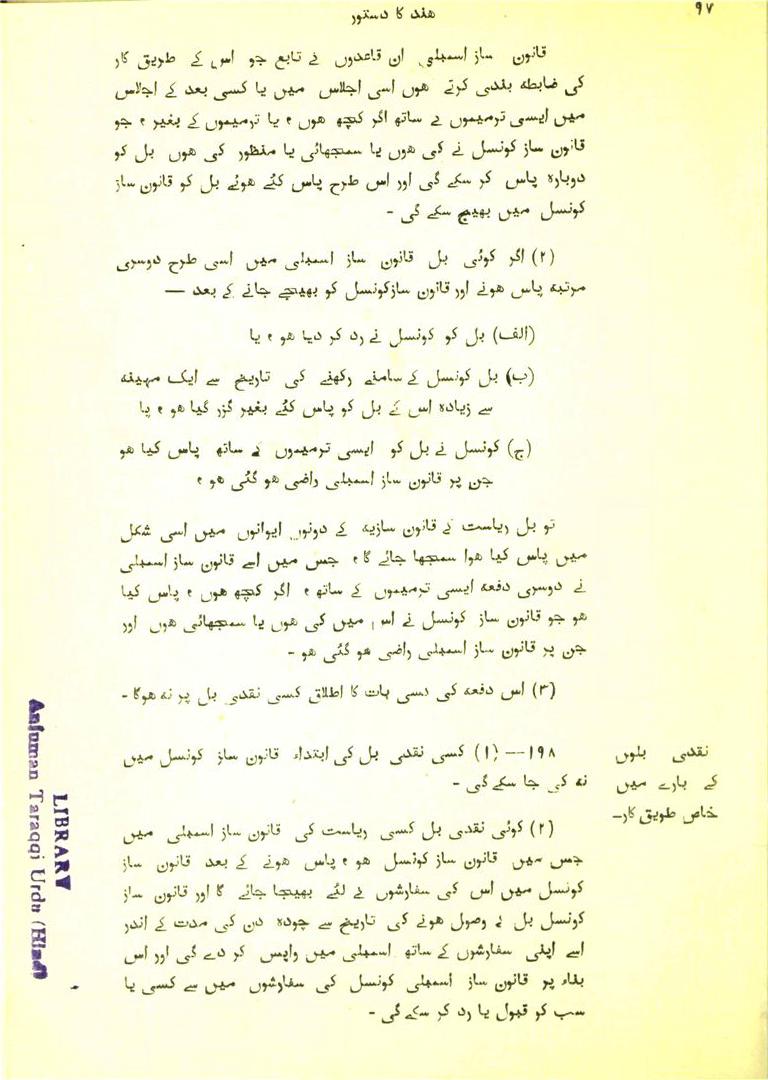 ۹۷
هند کا دستور
قانون ساز اسمبلی ان قاعدوں کے تابع جو اس کے طریق کار
کی ضابطہ بندی کرتے هوں اسی اجلاس میں یا کسی بعد کے اجلاس
میں ایسی ترمیموں کے ساتھ اگر کچھ هوں ، یا ترمیموں کے بغیر ، جو
قانون ساز کونسل نے کی هوں یا سمجھائی یا منظور کی هوں بل کو
دوبارہ پاس کر سکے گی اور اس طرح پاس کئے هوئے بل کو قانون ساز
کونسل میں بھیج سکے گی -
(۲) اگر کوئی بل قانون ساز اسمبلی میں اسی طرح دوسری
مرتبہ پاس هونے اور قانون ساز کونسل کو بھیجے جانے کے بعد —
(الف) بل کو کونسل نے رد کر دیا هو ، یا
(ب) بل کونسل کے سامنے رکھنے کی تاریخ سے ایک مہینہ
سے زیادہ اس کے بل کو پاس کئے بغیر گزر گیا هو ، یا
(ج) کونسل نے بل کو ایسی ترمیموں کے ساتھ پاس کیا هو
جن پر قانون ساز اسمبلی راضی هو گئی هو ،
تو بل ریاست کے قانون سازیہ کے دونوں ایوانوں میں اسی شکل
میں پاس کیا هوا سمجھا جائے گا ، جس میں اسے قانون ساز اسمبلی
نے دوسری دفعہ ایسی ترمیموں کے ساتھ ، اگر کچھ هوں ، پاس کیا
هو جو قانون ساز کونسل نے اس میں کی هوں یا سمجھائی هوں اور
جن پر قانون ساز اسمبلی راضی هو گئی هو -
(۳) اس دفعہ کی کسی بات کا اطلاق کسی نقدی بل پر نہ هوگا -
نقدی بلوں
کے بارے میں
خاص طریق کار-
۱۹۸ -- (۱) کسی نقدی بل کی ابتداء قانون ساز کونسل میں
نہ کی جا سکے گی -
(۲) کوئی نقدی بل کسی ریاست کی قانون ساز اسمبلی میں
جس میں قانون ساز کونسل هو ، پاس هونے کے بعد قانون ساز
کونسل میں اس کی سفارشوں کے لئے بھیجا جائے گا اور قانون ساز
کونسل بل کے وصول هونے کی تاریخ سے چودہ دن کی مدت کے اندر
اسے اپنی سفارشوں کے ساتھ اسمبلی میں واپس کر دے گی اور اس
بناء پر قانون ساز اسمبلی کونسل کی سفارشوں میں سے کسی یا
سب کو قبول یا رد کر سکے گی -
LIBRARY
Anjuman Taraqqi Urdu (Hind)